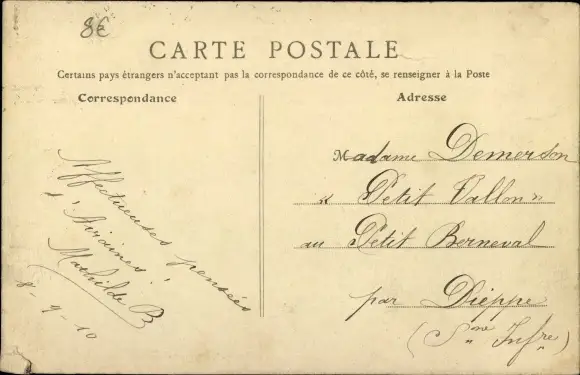 8€
CARTE POSTALE
Certains pays étrangers n'acceptant pas la correspondance de ce côté, se renseigner à la Poste
Correspondance
Affectueuses pensées
d'Airaines
Mathilde B
8-9-10
Adresse
Madame Demerson
« Petit Vallon »
au Petit Berneval
par Dieppe
(Sne Infre)